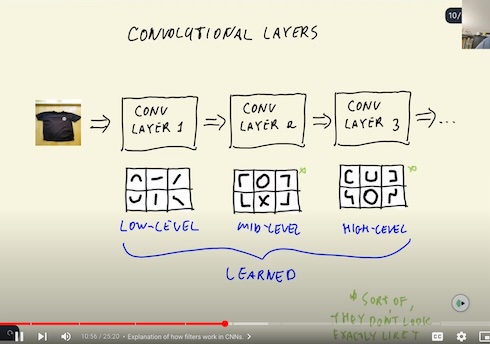 10/
CONVOLUTIONAL LAYERS
CONV
LAYER 1
CONV
LAYER 2
CONV
LAYER 3
...
LOW-LEVEL
MID-LEVEL
HIGH-LEVEL
LEARNED
* SORT OF,
THEY DON'T LOOK
EXACTLY LIKE T
10:56 / 25:20 • Explanation of how filters work in CNNs. >